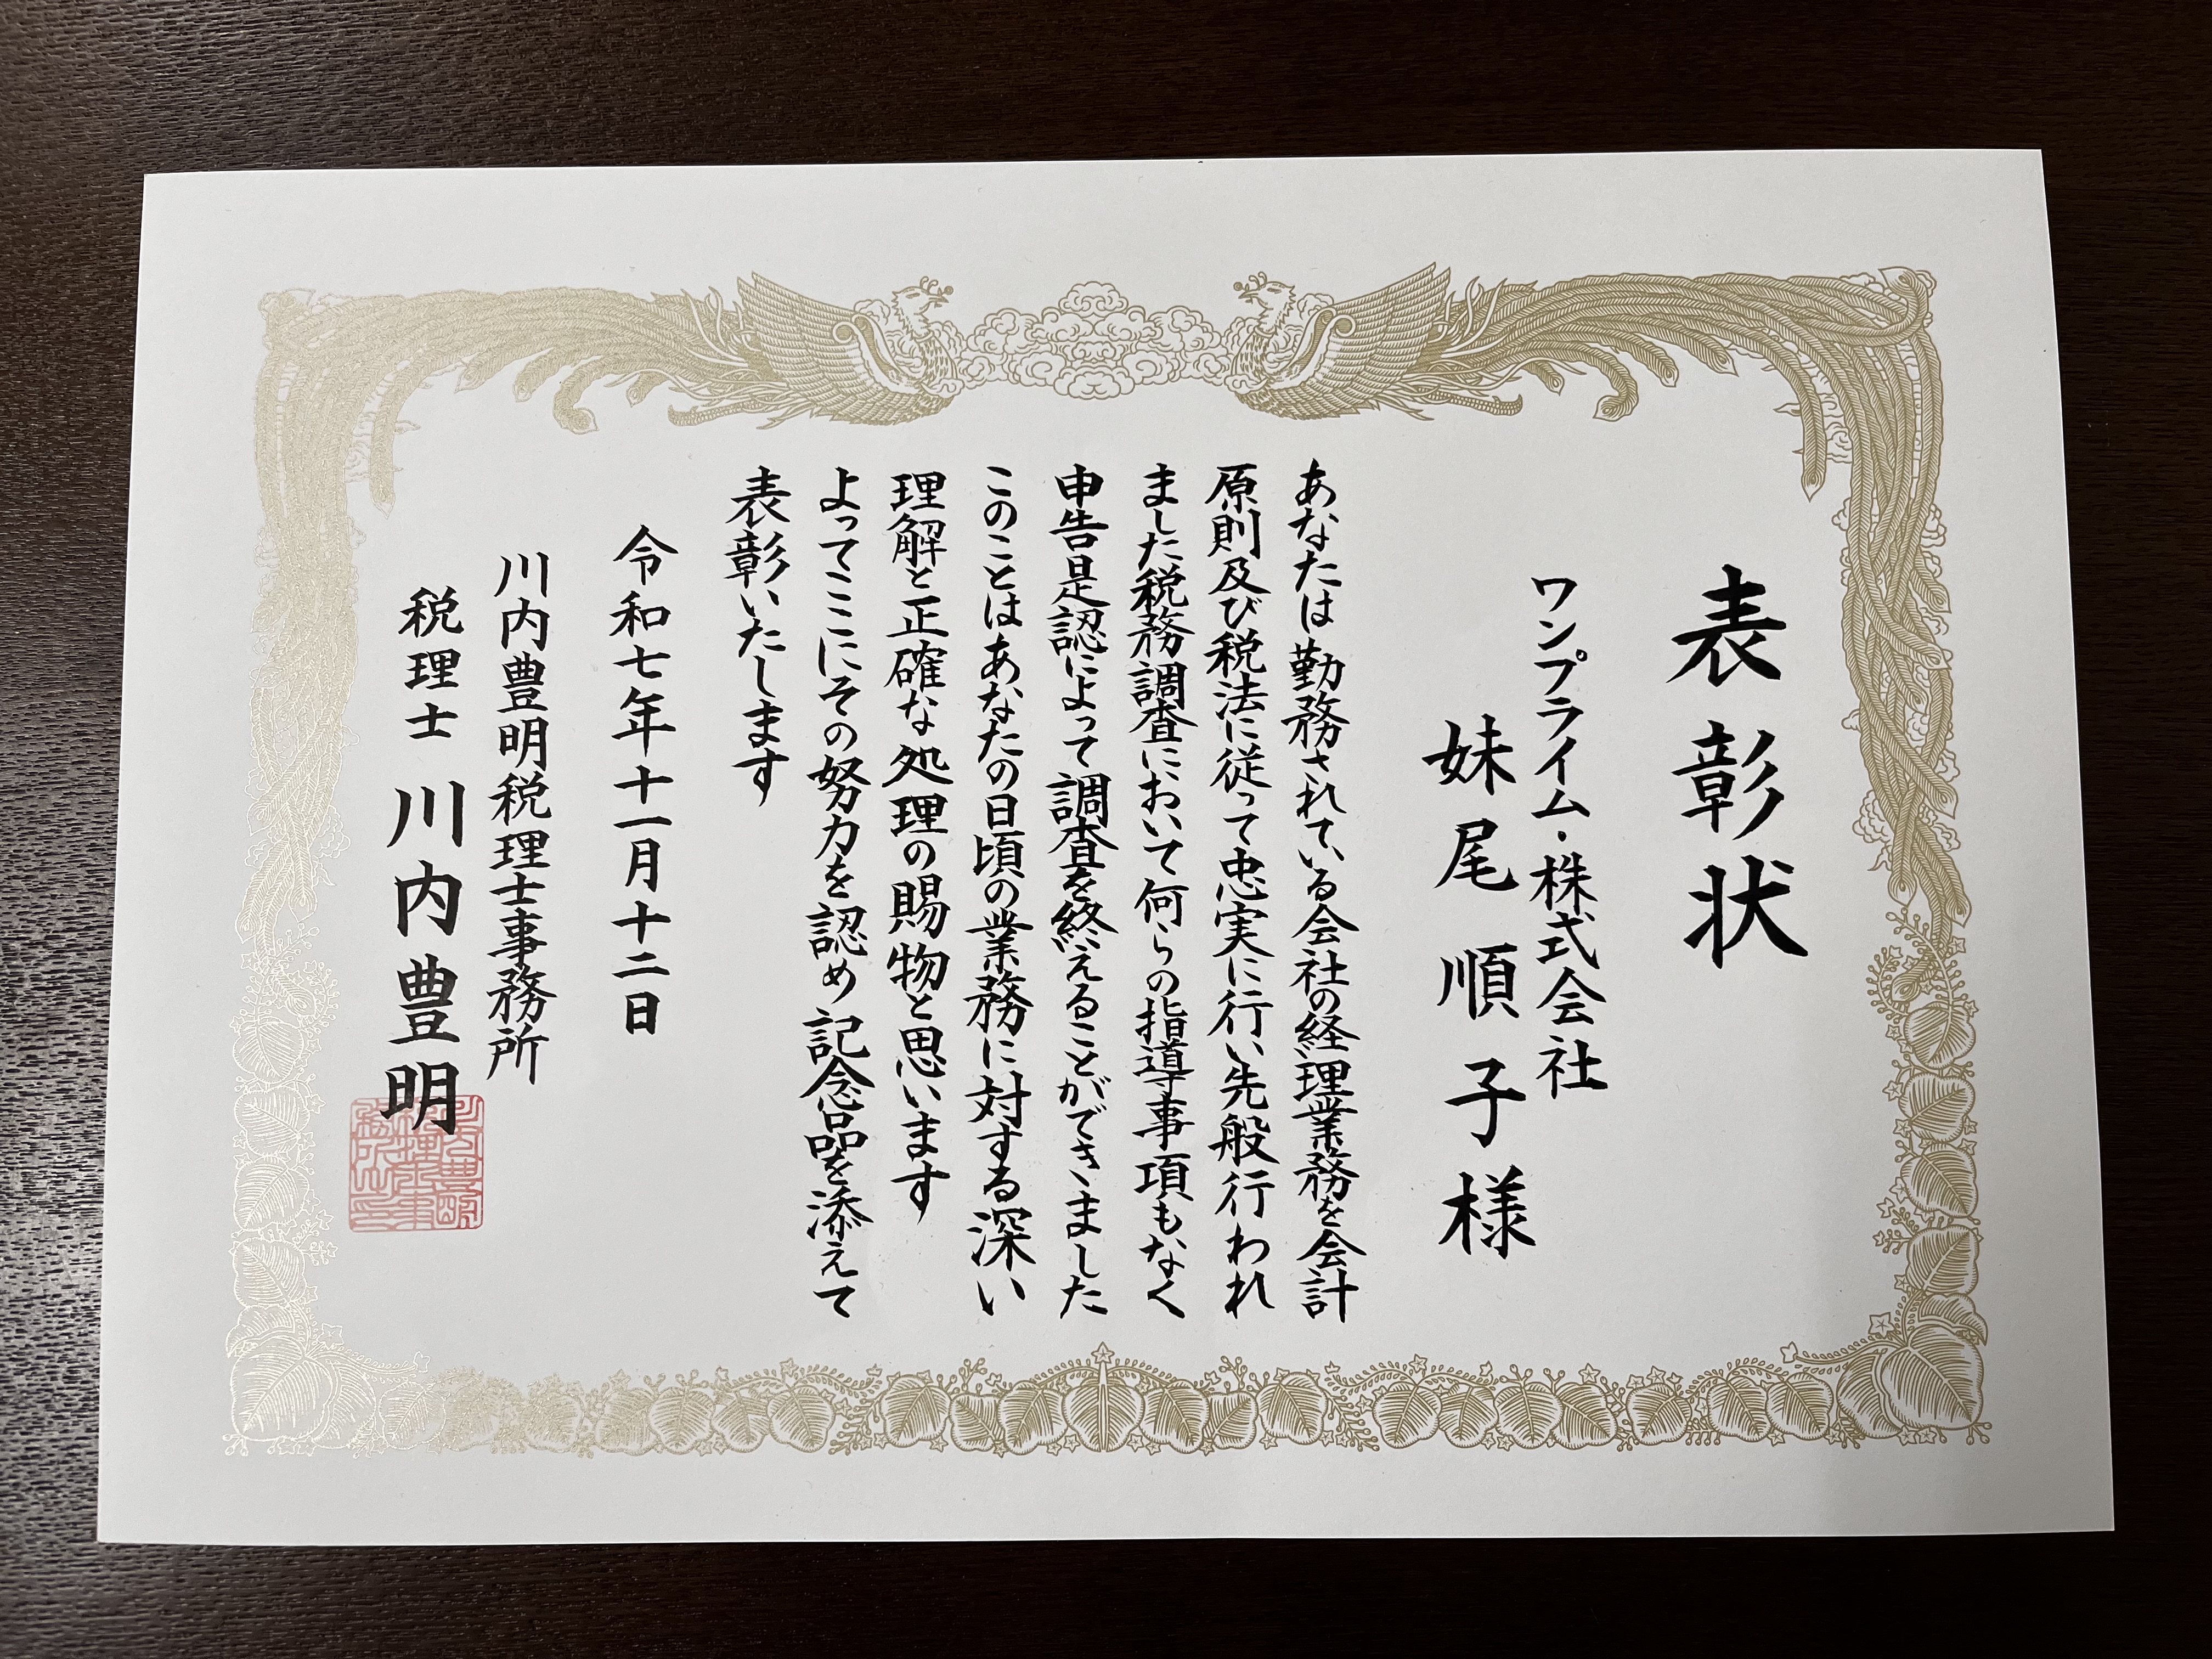 表彰状
ワンプライム・株式会社
妹尾順子様
あなたは勤務されている会社の経理業務を会計
原則及び税法に従って忠実に行い先般行われ
ました税務調査において何らの指導事項もなく
申告是認によって調査を終えることができました
このことはあなたの日頃の業務に対する深い
理解と正確な処理の賜物と思います
よってここにその努力を認め記念品を添えて
表彰いたします
令和七年十一月十二日
川内豊明税理士事務所
税理士 川内豊明